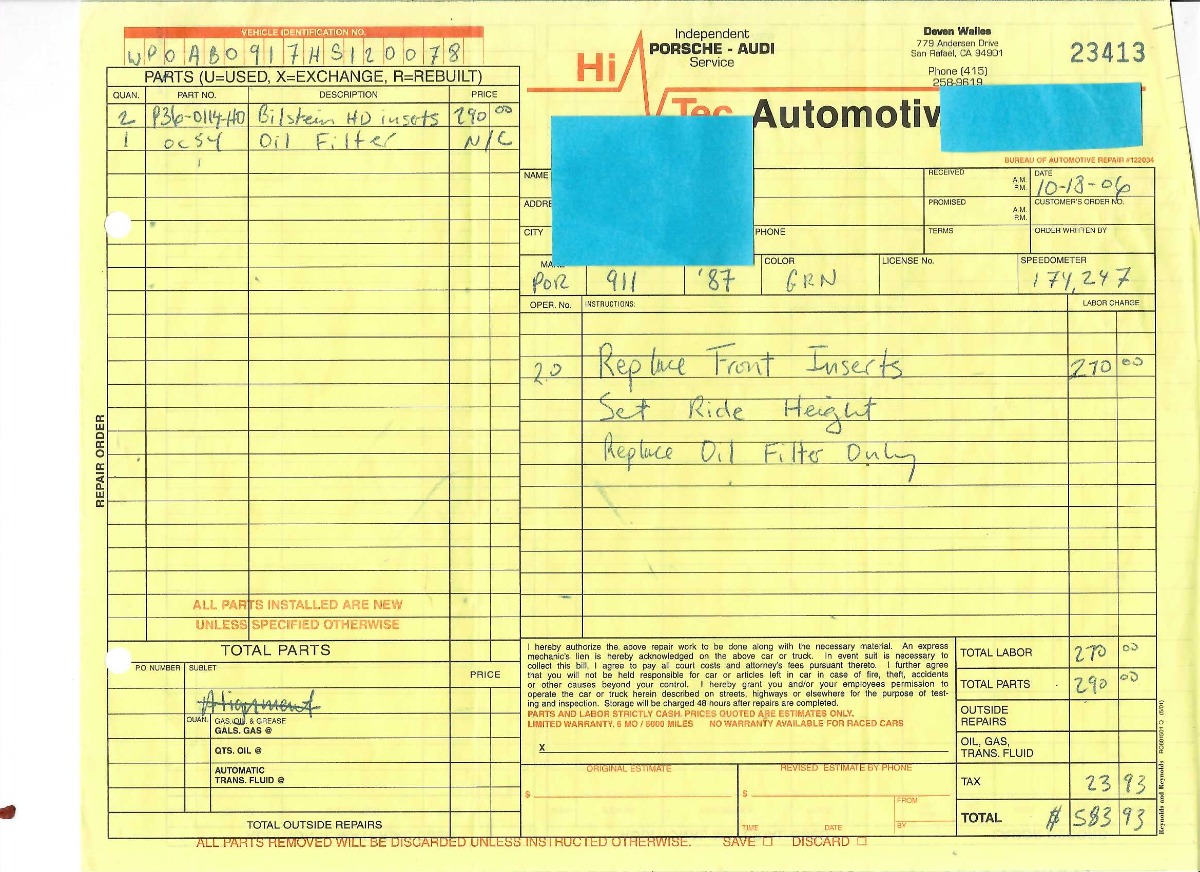 VEHICLE IDENTIFICATION NO.
WP0AB0917HS120078
PARTS (U=USED, X=EXCHANGE, R=REBUILT)
QUAN. PART NO. DESCRIPTION PRICE
2 P36-0114-HD Bilstein HD inserts 290 00
1 OC54 Oil Filter N/C
Independent
PORSCHE - AUDI
Service
Hi Tec Automotiv
Deven Wailes
779 Andersen Drive
San Rafael, CA 94901
Phone (415)
258-9619
23413
BUREAU OF AUTOMOTIVE REPAIR #122034
NAME RECEIVED A.M. P.M. DATE 10-18-06
ADDRE PROMISED A.M. P.M. CUSTOMER'S ORDER NO.
CITY PHONE TERMS ORDER WRITTEN BY
MA COLOR LICENSE No. SPEEDOMETER
POR 911 '87 GRN 174,247
OPER. No. INSTRUCTIONS: LABOR CHARGE
20 Replace Front Inserts 270 00
Set Ride Height
Replace Oil Filter Only
REPAIR ORDER
ALL PARTS INSTALLED ARE NEW
UNLESS SPECIFIED OTHERWISE
TOTAL PARTS
PO NUMBER SUBLET PRICE
Alignment
QUAN. GAS, OIL & GREASE
GALS. GAS @
QTS. OIL @
AUTOMATIC
TRANS. FLUID @
TOTAL OUTSIDE REPAIRS
I hereby authorize the above repair work to be done along with the necessary material. An express
mechanic's lien is hereby acknowledged on the above car or truck. In event suit is necessary to
collect this bill, I agree to pay all court costs and attorney's fees pursuant thereto. I further agree
that you will not be held responsible for car or articles left in car in case of fire, theft, accidents
or other causes beyond your control. I hereby grant you and/or your employees permission to
operate the car or truck herein described on streets, highways or elsewhere for the purpose of test-
ing and inspection. Storage will be charged 48 hours after repairs are completed.
PARTS AND LABOR STRICTLY CASH. PRICES QUOTED ARE ESTIMATES ONLY.
LIMITED WARRANTY, 6 MO / 6000 MILES NO WARRANTY AVAILABLE FOR RACED CARS
X
ORIGINAL ESTIMATE REVISED ESTIMATE BY PHONE
$ $ FROM
TIME DATE BY
TOTAL LABOR 270 00
TOTAL PARTS 290 00
OUTSIDE
REPAIRS
OIL, GAS,
TRANS. FLUID
TAX 23 93
TOTAL $ 583 93
Reynolds and Reynolds
ALL PARTS REMOVED WILL BE DISCARDED UNLESS INSTRUCTED OTHERWISE. SAVE DISCARD